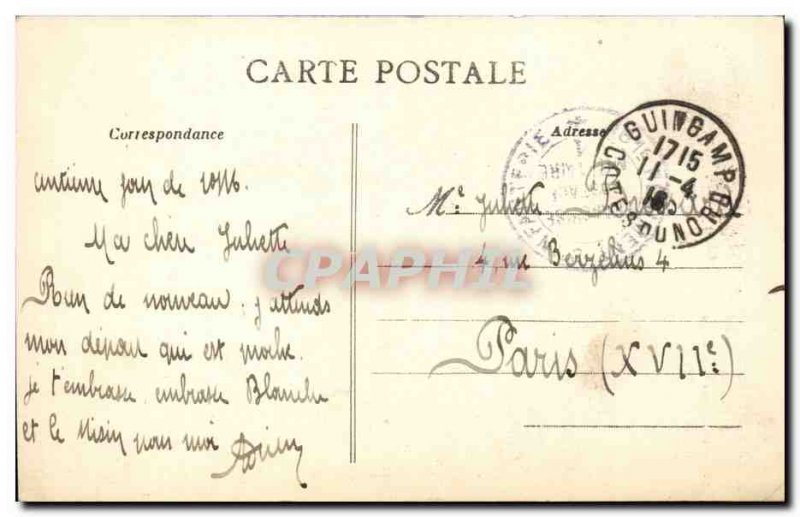 CARTE POSTALE
Correspondance
Adresse
GUINGAMP
1715
11-4
16
COTES DU NORD
jour de 1916.
Ma chère Juliette
Rien de nouveau, j'attends
mon départ qui est proche.
je t'embrasse. embrasse Blanche
et le pour moi
Juliette
4, rue Berzélius 4
Paris (XVIIe)
CPAPHIL